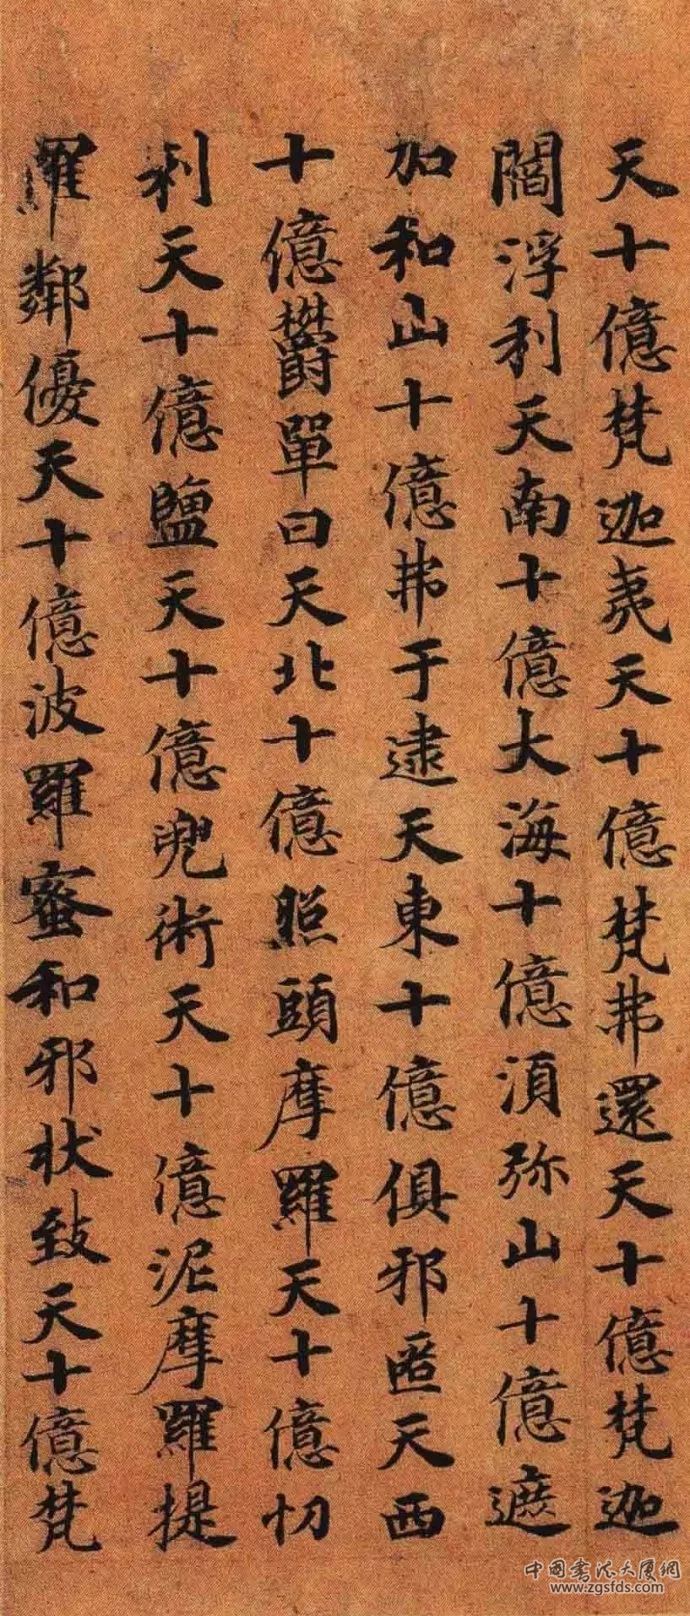 天十億梵迦夷天十億梵弗還天十億梵迦
閻浮利天南十億大海十億須弥山十億遮
加和山十億弗于逮天東十億俱邪匿天西
十億欝單曰天北十億照頭摩羅天十億忉
利天十億鹽天十億兜術天十億泥摩羅提
羅鄰優天十億波羅蜜和邪状致天十億梵
中国书法大厦網
www.zgsfds.com